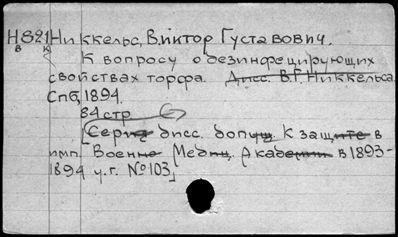 Н821 Никкельс, Виктор Густавович.
в к
К вопросу о дезинфецирующих
свойствах торфа. Дисс. В.Г. Никкельса
Спб, 1894.
84 стр
[Серия дисс. допущ. к защите в
имп. Военно Медиц. Академии в 1893-
1894 у.г. №103]